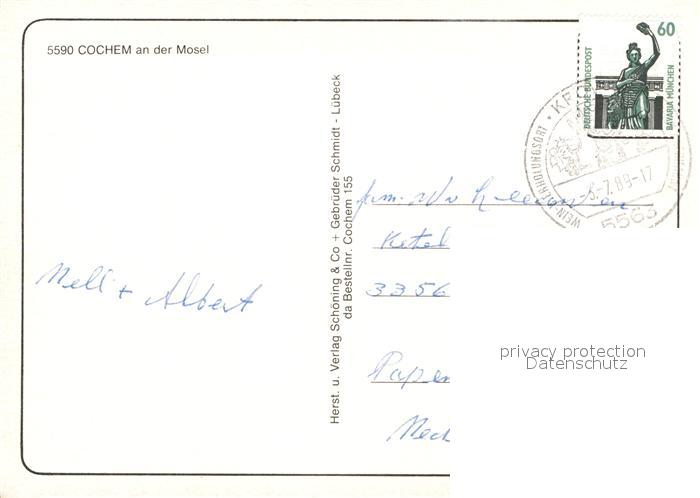 5590 COCHEM an der Mosel
60
DEUTSCHE BUNDESPOST
BAVARIA MÜNCHEN
WEIN-ERHOLUNGSORT · KR
-3.-7.89-17
5563
Herst. u. Verlag Schöning & Co + Gebrüder Schmidt - Lübeck
da Bestellnr. Cochem 155
fam.
Ketel
3356
Papen
Nell + Albert
privacy protection
Datenschutz